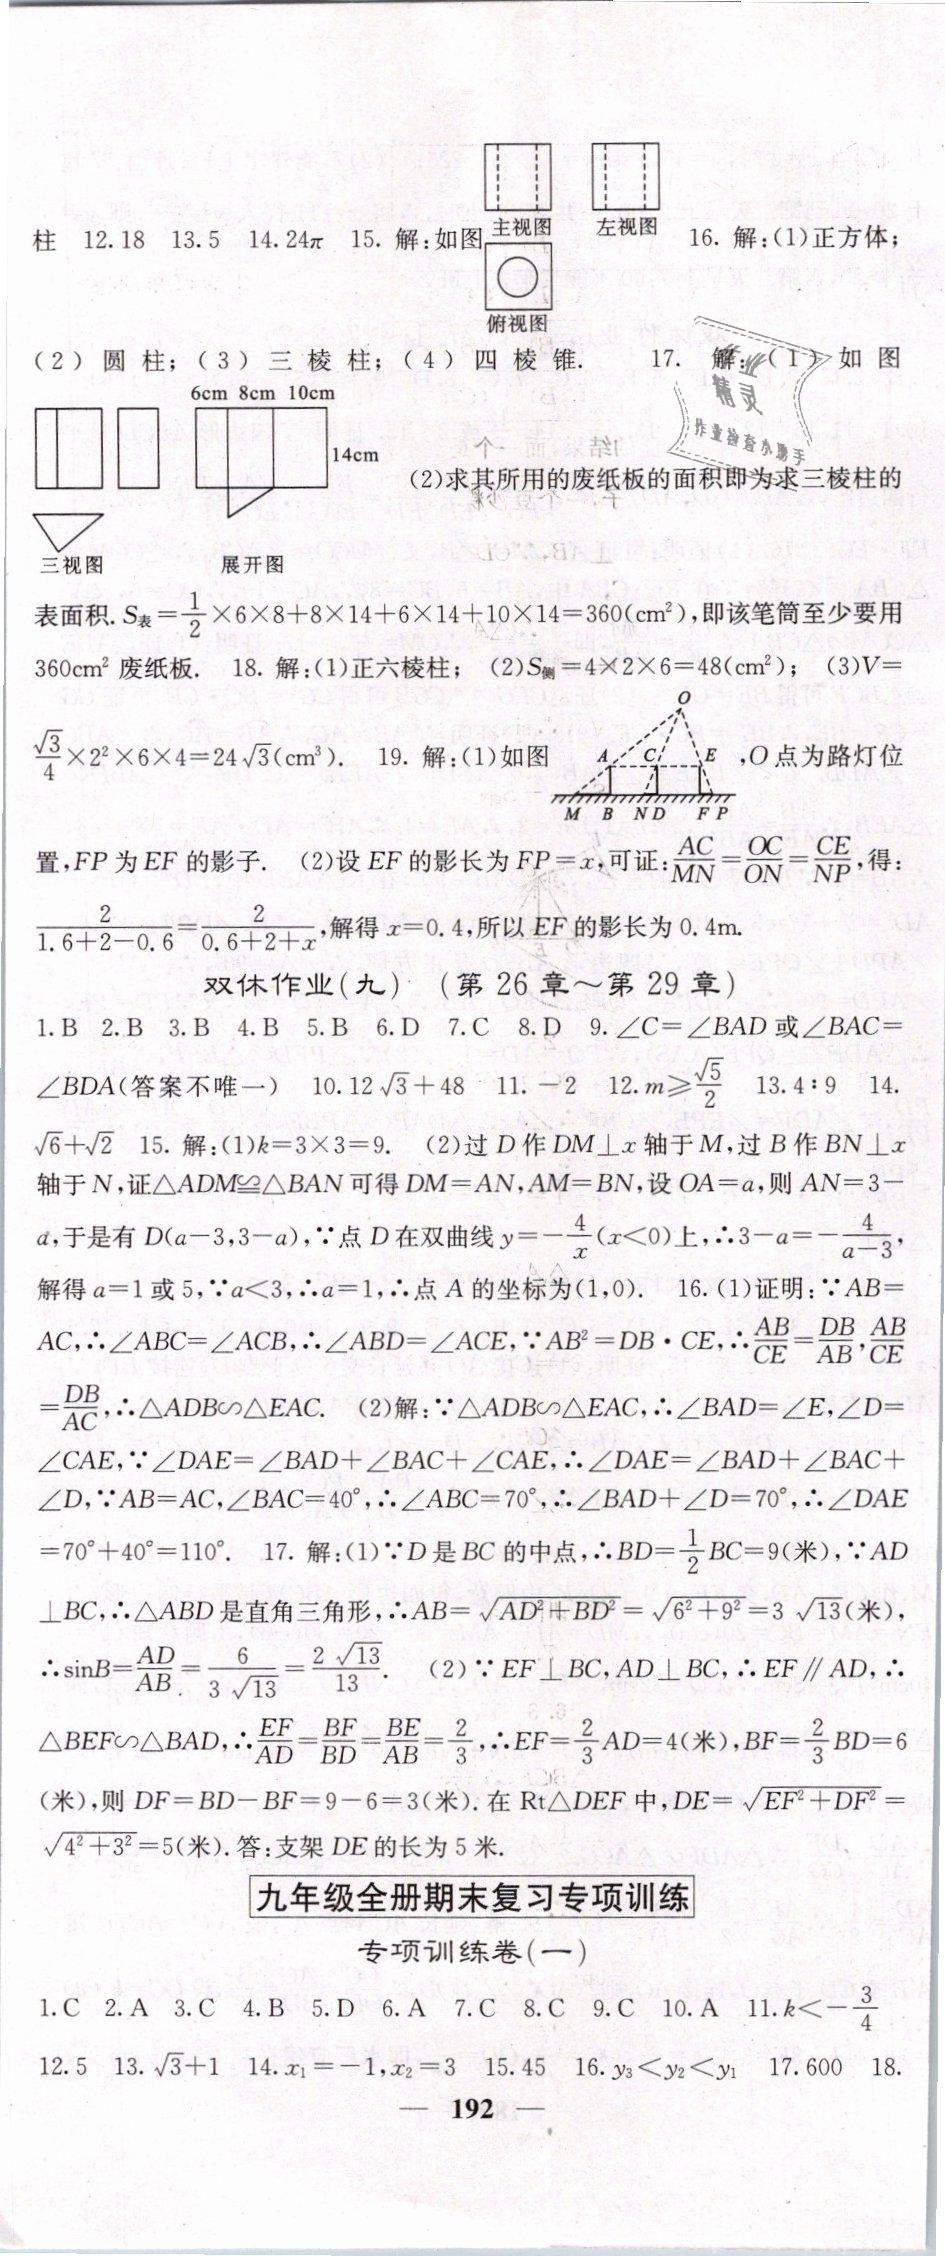 主视图 左视图
柱 12.18 13.5 14.24π 15. 解:如图 16. 解:(1)正方体;
俯视图
(2)圆柱;(3)三棱柱;(4)四棱锥. 17. 解:(1)如图
精灵
作业检查小助手
6cm 8cm 10cm
14cm
(2)求其所用的废纸板的面积即为求三棱柱的
三视图 展开图
表面积. S表=\frac{1}{2}×6×8+8×14+6×14+10×14=360(cm²),即该笔筒至少要用
360cm² 废纸板. 18. 解:(1)正六棱柱; (2)S侧=4×2×6=48(cm²); (3)V=
O
\frac{√3}{4}×2²×6×4=24√3(cm³). 19. 解:(1)如图 A C E ,O点为路灯位
M B N D F P
置,FP为EF的影子. (2)设EF的影长为FP=x,可证:\frac{AC}{MN}=\frac{OC}{ON}=\frac{CE}{NP},得:
\frac{2}{1.6+2-0.6}=\frac{2}{0.6+2+x},解得x=0.4,所以EF的影长为0.4m.
双休作业(九) (第26章～第29章)
1.B 2.B 3.B 4.B 5.B 6.D 7.C 8.D 9.∠C=∠BAD或∠BAC=
∠BDA(答案不唯一) 10.12√3+48 11.-2 12.m≥\frac{√5}{2} 13.4∶9 14.
√6+√2 15. 解:(1)k=3×3=9. (2)过D作DM⊥x轴于M,过B作BN⊥x
轴于N,证△ADM≌△BAN可得DM=AN,AM=BN,设OA=a,则AN=3-
a,于是有D(a-3,3-a),∵点D在双曲线y=-\frac{4}{x}(x<0)上,∴3-a=-\frac{4}{a-3},
解得a=1或5,∵a<3,∴a=1,∴点A的坐标为(1,0). 16.(1)证明:∵AB=
AC,∴∠ABC=∠ACB,∴∠ABD=∠ACE,∵AB²=DB·CE,∴\frac{AB}{CE}=\frac{DB}{AB},\frac{AB}{CE}
=\frac{DB}{AC},∴△ADB∽△EAC. (2)解:∵△ADB∽△EAC,∴∠BAD=∠E,∠D=
∠CAE,∵∠DAE=∠BAD+∠BAC+∠CAE,∴∠DAE=∠BAD+∠BAC+
∠D,∵AB=AC,∠BAC=40°,∴∠ABC=70°,∴∠BAD+∠D=70°,∴∠DAE
=70°+40°=110°. 17. 解:(1)∵D是BC的中点,∴BD=\frac{1}{2}BC=9(米),∵AD
⊥BC,∴△ABD是直角三角形,∴AB=√(AD²+BD²)=√(6²+9²)=3√13(米),
∴sinB=\frac{AD}{AB}=\frac{6}{3√13}=\frac{2√13}{13}. (2)∵EF⊥BC,AD⊥BC,∴EF∥AD,∴
△BEF∽△BAD,∴\frac{EF}{AD}=\frac{BF}{BD}=\frac{BE}{AB}=\frac{2}{3},∴EF=\frac{2}{3}AD=4(米),BF=\frac{2}{3}BD=6
(米),则DF=BD-BF=9-6=3(米).在Rt△DEF中,DE=√(EF²+DF²)=
√(4²+3²)=5(米).答:支架DE的长为5米.
九年级全册期末复习专项训练
专项训练卷(一)
1.C 2.A 3.C 4.B 5.D 6.A 7.C 8.C 9.C 10.A 11.k<-\frac{3}{4}
12.5 13.√3+1 14.x₁=-1,x₂=3 15.45 16.y₃<y₂<y₁ 17.600 18.
— 192 —